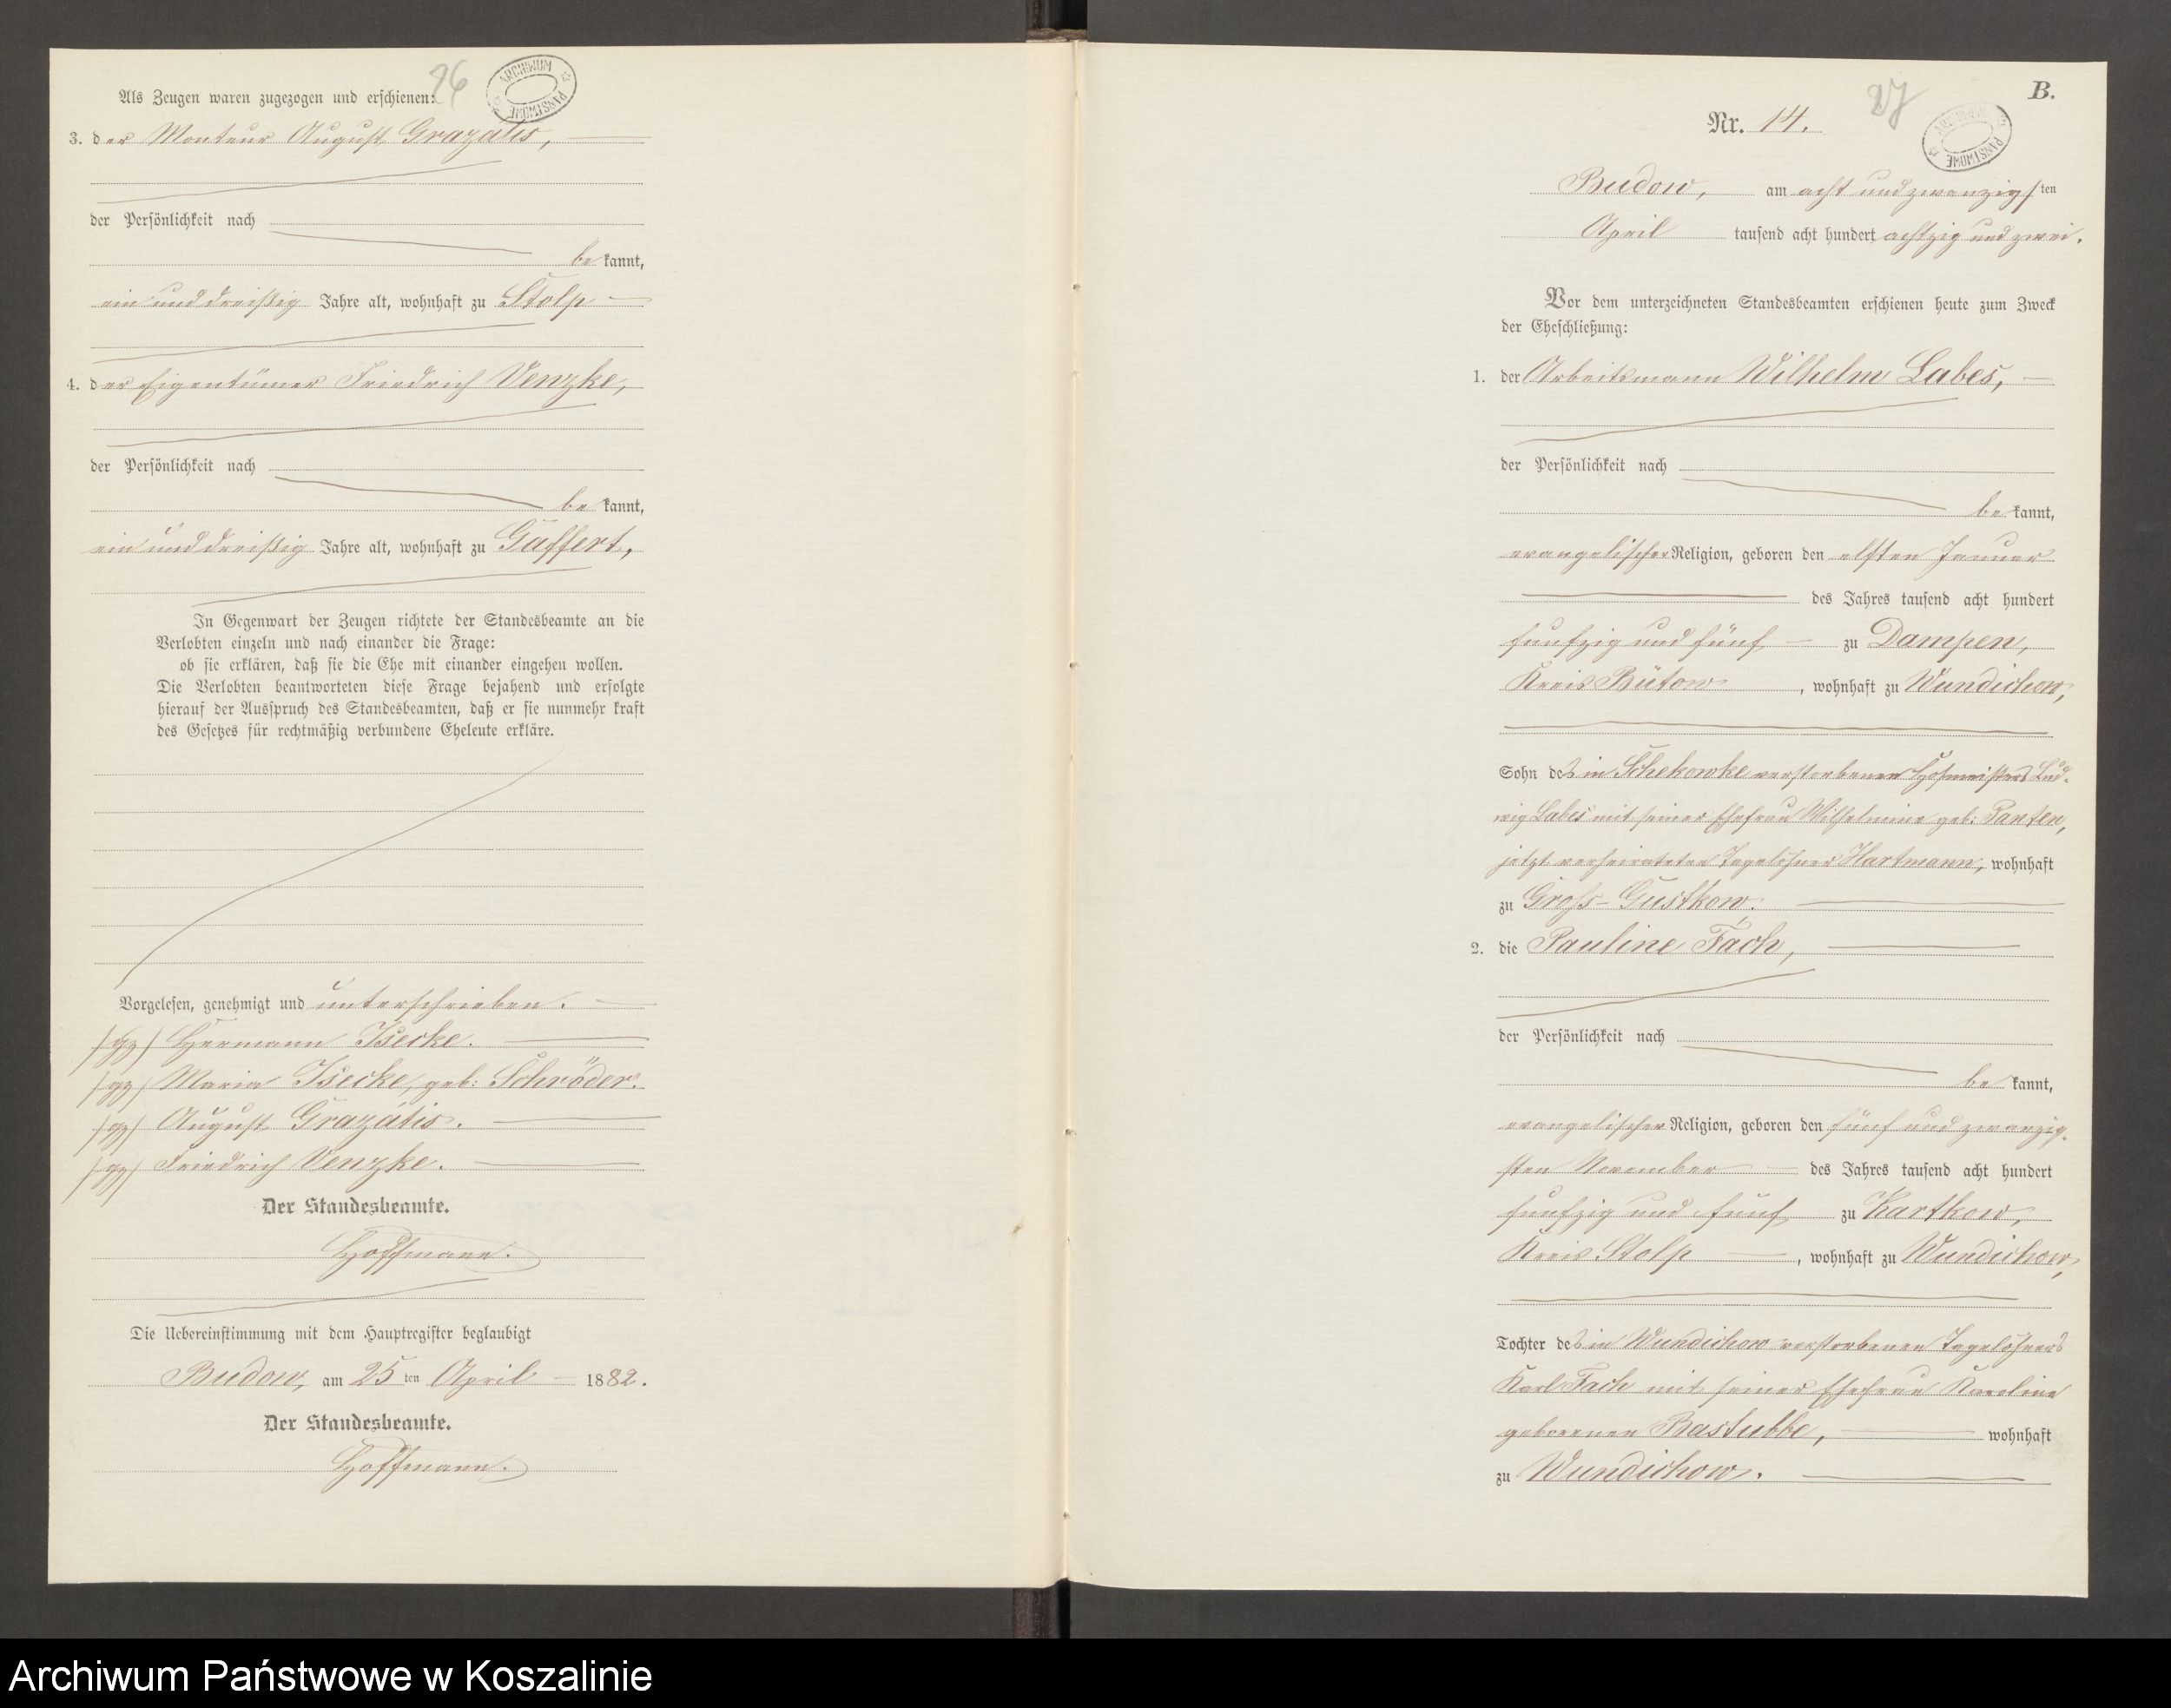 26
ARCHIWUM PAŃSTWOWE
Als Zeugen waren zugezogen und erschienen:
3. der Monteur August Grazatis,
der Persönlichkeit nach
be kannt,
ein und dreißig Jahre alt, wohnhaft zu Stolp
4. der Eigentümer Friedrich Venzke,
der Persönlichkeit nach
be kannt,
ein und dreißig Jahre alt, wohnhaft zu Gaffert,
In Gegenwart der Zeugen richtete der Standesbeamte an die
Verlobten einzeln und nach einander die Frage:
ob sie erklären, daß sie die Ehe mit einander eingehen wollen.
Die Verlobten beantworteten diese Frage bejahend und erfolgte
hierauf der Ausspruch des Standesbeamten, daß er sie nunmehr kraft
des Gesetzes für rechtmäßig verbundene Eheleute erkläre.
Vorgelesen, genehmigt und unterschrieben.
(gz) Hermann Isecke.
(gz) Maria Isecke, geb: Schröder.
(gz) August Grazatis.
(gz) Friedrich Venzke.
Der Standesbeamte.
Hoffmann.
Die Uebereinstimmung mit dem Hauptregister beglaubigt
Budow, am 25 ten April 1882.
Der Standesbeamte.
Hoffmann.
B.
27
Nr. 14.
ARCHIWUM PAŃSTWOWE
Budow, am acht und zwanzigs ten
April tausend acht hundert achtzig und zwei.
Vor dem unterzeichneten Standesbeamten erschienen heute zum Zweck
der Eheschließung:
1. der Arbeitsmann Wilhelm Labes,
der Persönlichkeit nach
be kannt,
evangelischer Religion, geboren den elften Januar
des Jahres tausend acht hundert
funfzig und fünf zu Dampen,
Kreis Bütow, wohnhaft zu Wundichow,
Sohn des in Schekowke verstorbenen Hofmeisters Lud-
wig Labes mit seiner Ehefrau Wilhelmine geb: Panten,
jetzt verheirateten Tagelöhner Hartmann, wohnhaft
zu Gross-Gustkow.
2. die Pauline Fach,
der Persönlichkeit nach
be kannt,
evangelischer Religion, geboren den fünf und zwanzig-
sten November des Jahres tausend acht hundert
funfzig und funf zu Kartkow,
Kreis Stolp, wohnhaft zu Wundichow,
Tochter des in Wundichow verstorbenen Tagelöhners
Karl Fach mit seiner Ehefrau Karoline
geborenen Bastubbe, wohnhaft
zu Wundichow.
Archiwum Państwowe w Koszalinie